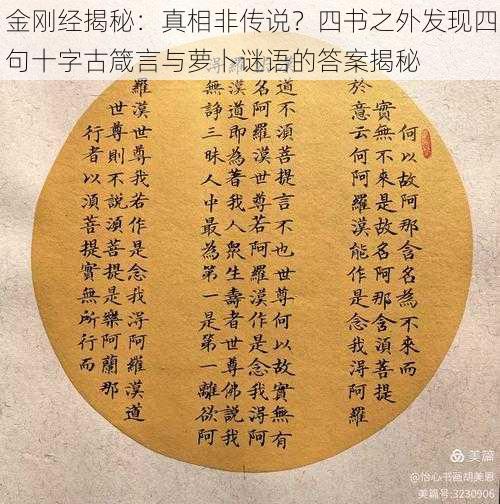 金刚经揭秘：真相非传说？四书之外发现四
句十字古箴言与萝卜谜语的答案揭秘
何以故阿那含名為不來而
實無不來是故名阿那含湏菩提
於意云何阿羅漢能作是念我淂阿羅
道不湏菩提言不也世尊何以故實無有
名阿羅漢世尊若阿羅漢作是念我淂阿
漢道即為著我人眾生壽者世尊佛説我
淂無諍三昧人中最為第一是第一離欲阿
羅漢世尊我若作是念我淂阿羅漢道
世尊則不説湏菩提是樂阿蘭那
行者以湏菩提實無所行而
美篇
@怡心书画胡美恩
美篇号:3230906